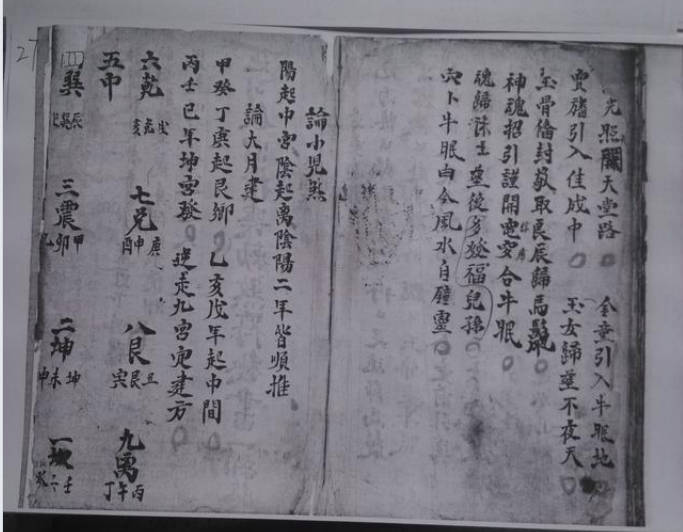 光照開天堂路 金童引入牛眠地
引入佳成中 玉女歸堂不夜天
玉骨 封敬取良辰歸馬鬣
神魂招引謹開 安合牛眠
魂歸 土塋後多發福兒孫
穴卜牛眠向合風水自
論小兒煞
陽起中宮陰起离陰陽二年皆順推
論大月建
甲癸丁庚起艮鄉 乙亥戊年起中間
丙壬巳年坤宮發 逆走九宮定建方
六乾 戌乾亥 七兌 庚申酉 八艮 丑艮寅 九离 丙午丁
五中
四巽 辰巽巳 三震 甲卯乙 二坤 坤未申 一坎 壬